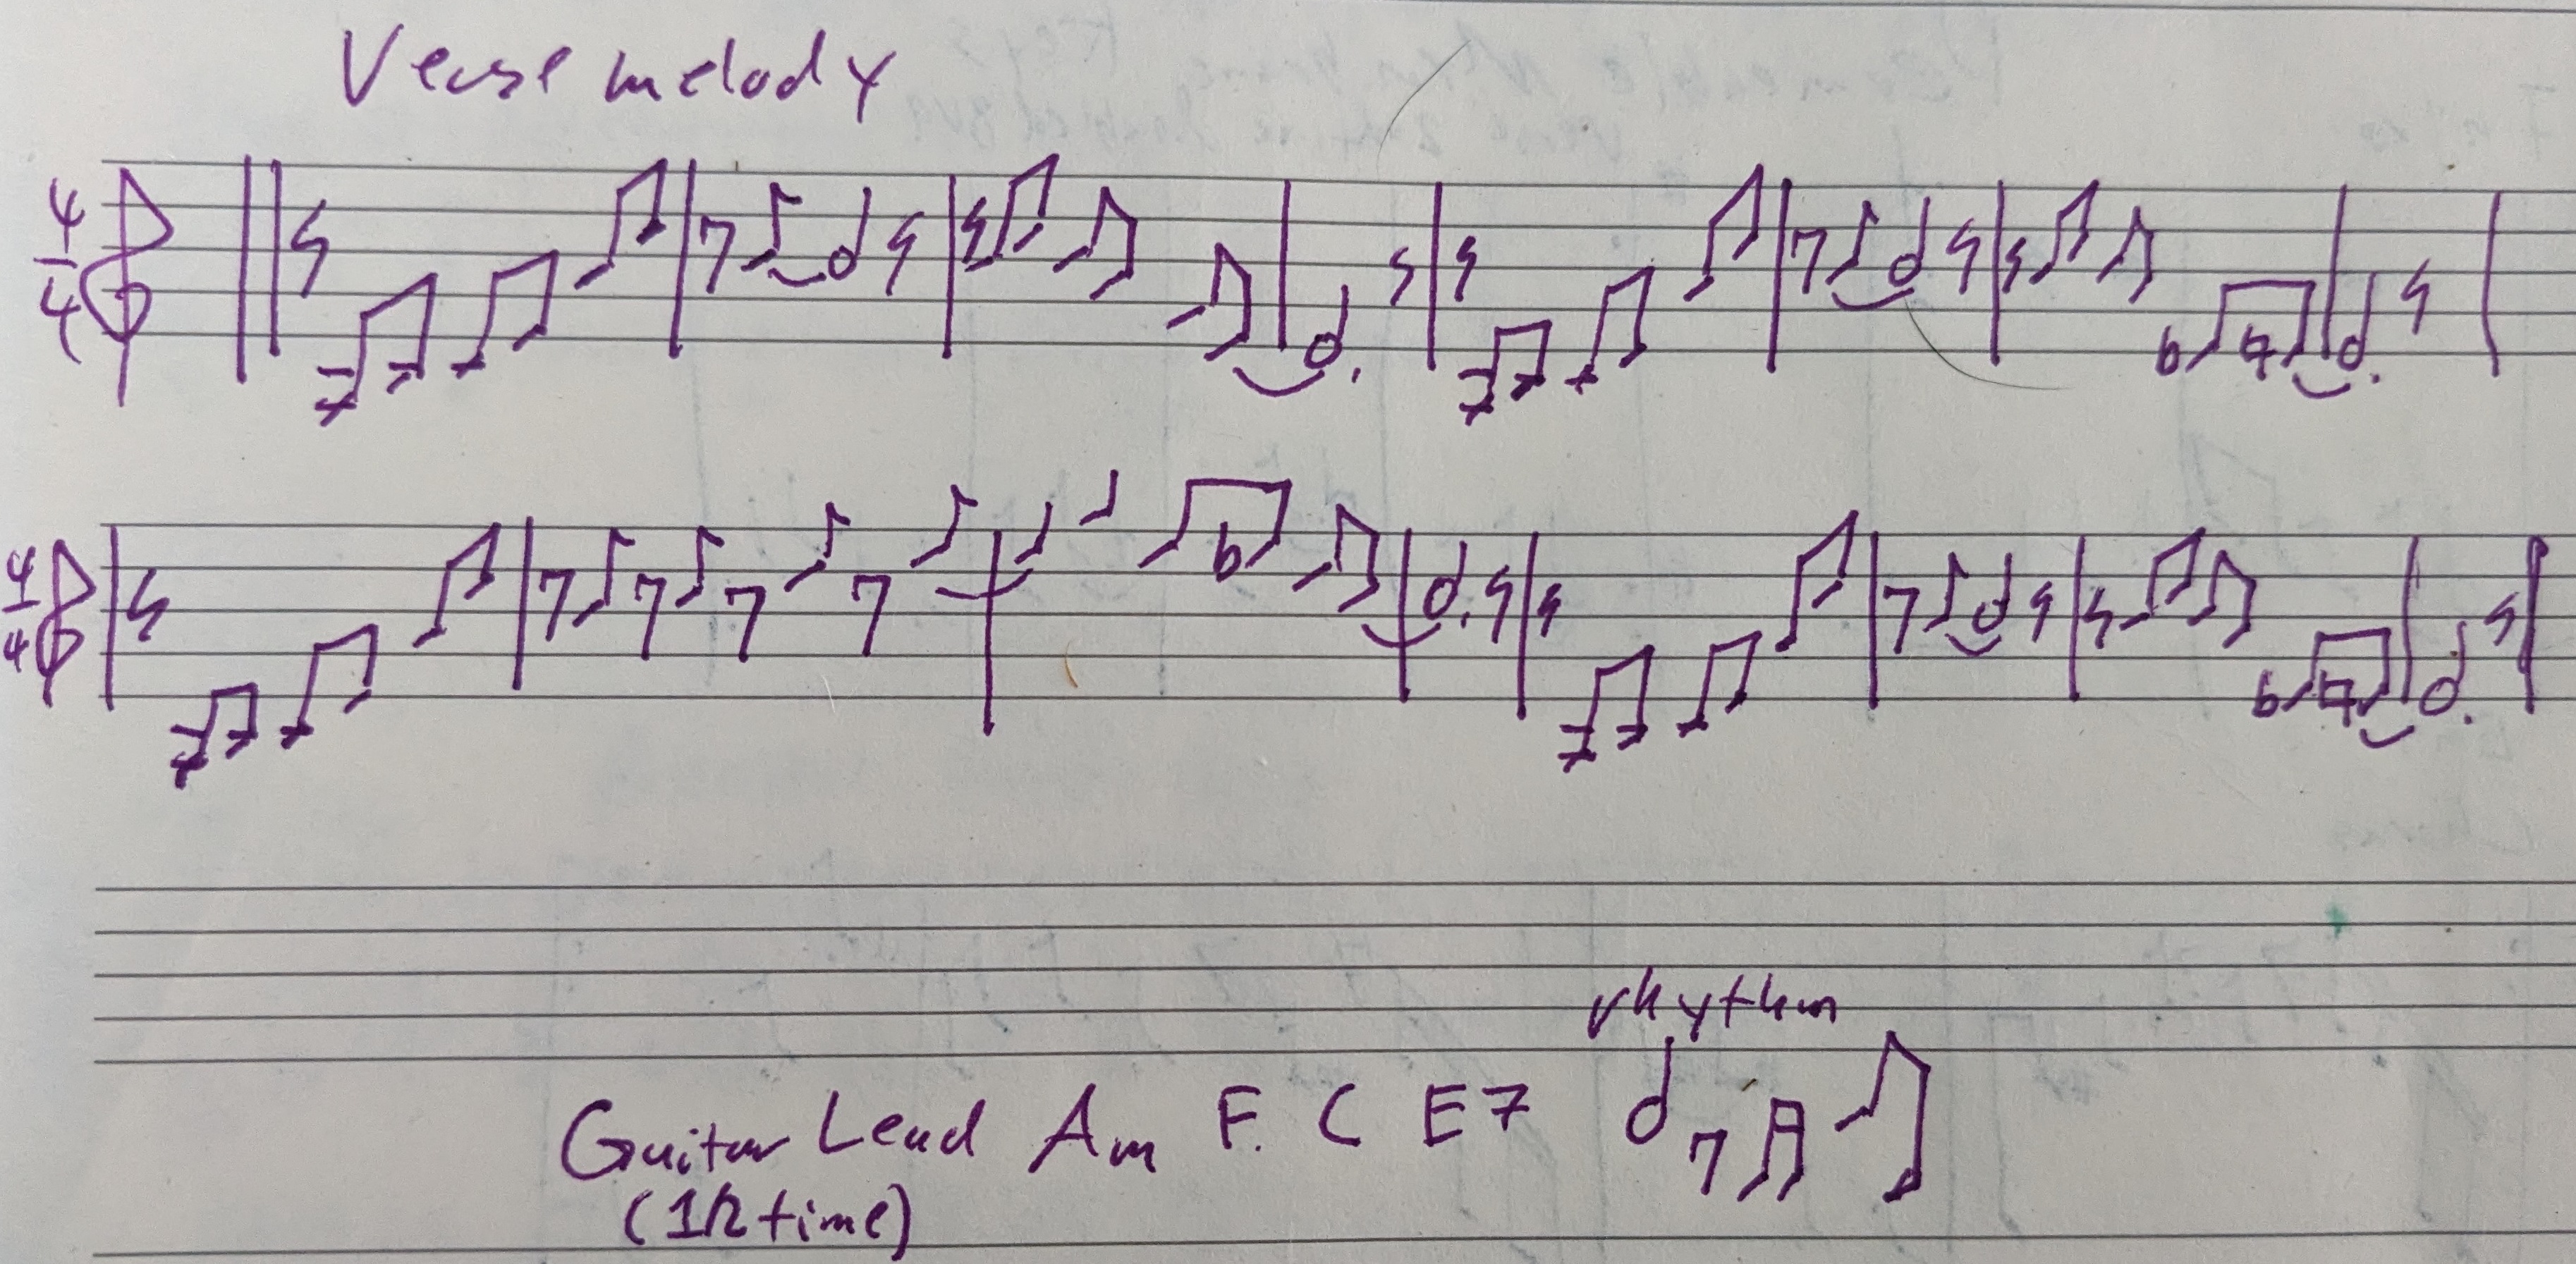 Verse melody
4
4
4
4
rhythm
Guitar Lead Am F. C E7
(1/2 time)